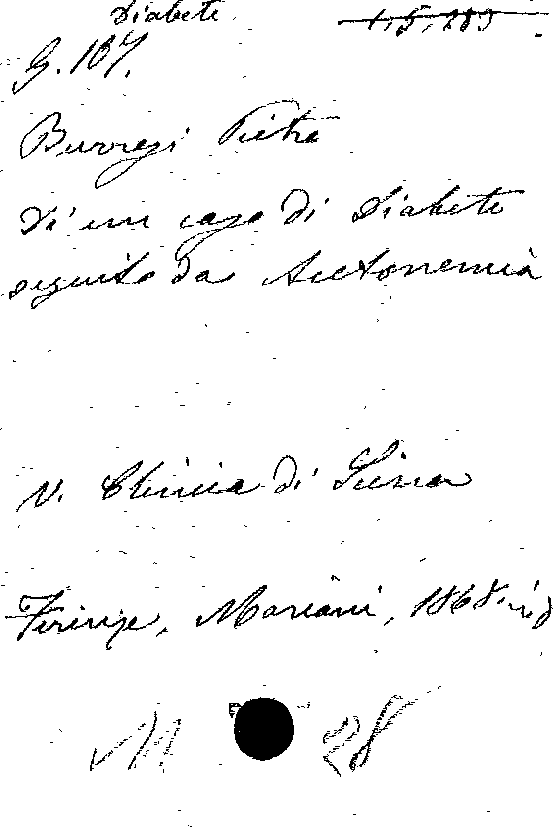 Diabete 1,5,283.
G. 107.
Burresi Pietro
Di un caso di Diabete
seguito da Acetonemia
V. Clinica di Siena
Firenze, Mariani, 1868. in 8
M 28